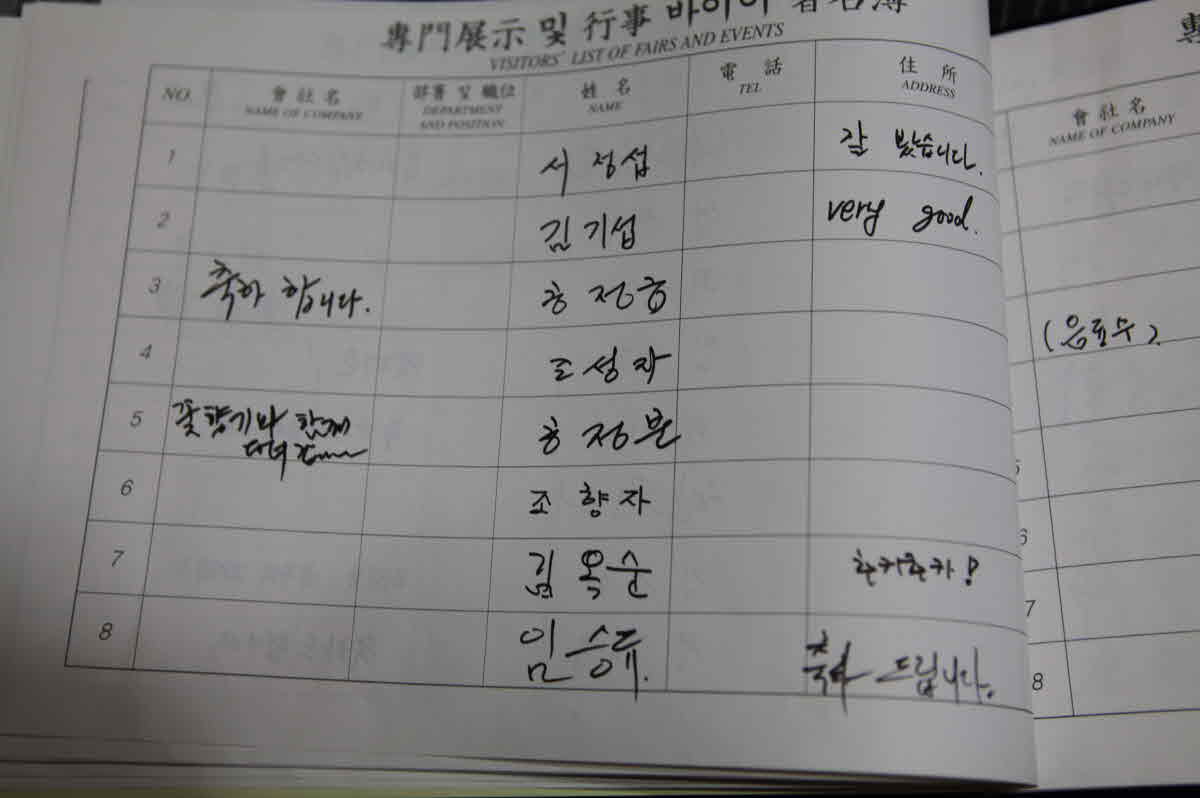 專門展示 및 行事 바이어 署名簿
VISITORS' LIST OF FAIRS AND EVENTS
NO. 會社名 部署 및 職位 姓名 電話 住所
NAME OF COMPANY DEPARTMENT AND POSITION NAME TEL ADDRESS
1 서정섭 잘 봤습니다.
2 김기섭 very good.
3 축하 합니다. 홍정흥
4 조성자
5 꽃향기와 함께 홍정분
다녀간
6 조향자
7 김옥순 추카추카!
8 임승혜. 축하 드립니다.
專
會社名
NAME OF COMPANY
(음료수).
6
7
8